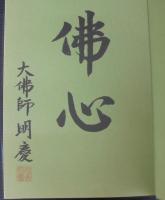 佛心
大佛師明慶